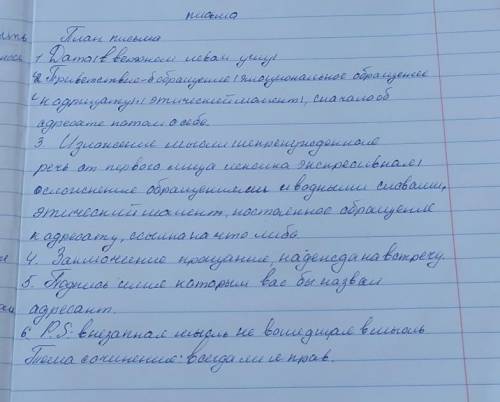 письмо
План письма
1 Дата (в верхнем левом углу)
2 Приветствие-обращение (эмоциональное обращение
к адрицату) (этический момент), сначало об
адресате потом о себе.
3. Изложение мысли (непренужденное
речь от первого лица лексика экспресивная)
осложнение обращениями и вводными словами,
этический момент, постоянное обращение
к адресату, ссылка на что либо.
4. Заключение прощание, надежда на встречу
5. Подпись с имя которым вас бы назвал
адресант.
6. P.S. внезапная мысль не вошедшая в мысль
Тема сочинения: всегда ли я прав.